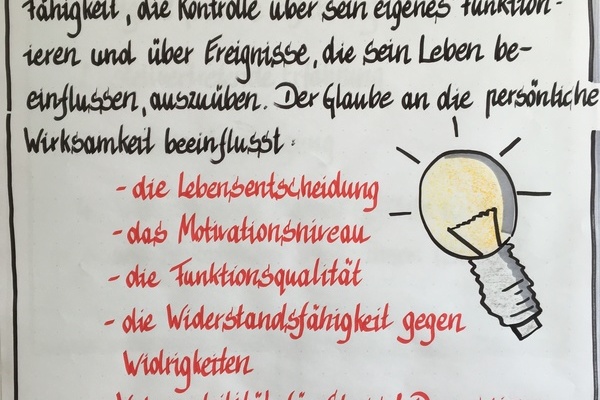 Fähigkeit, die Kontrolle über sein eigenes Funktion-
ieren und über Ereignisse, die sein Leben be-
einflussen, auszuüben. Der Glaube an die persönliche
Wirksamkeit beeinflusst:
- die Lebensentscheidung
- das Motivationsniveau
- die Funktionsqualität
- die Widerstandsfähigkeit gegen
Widrigkeiten